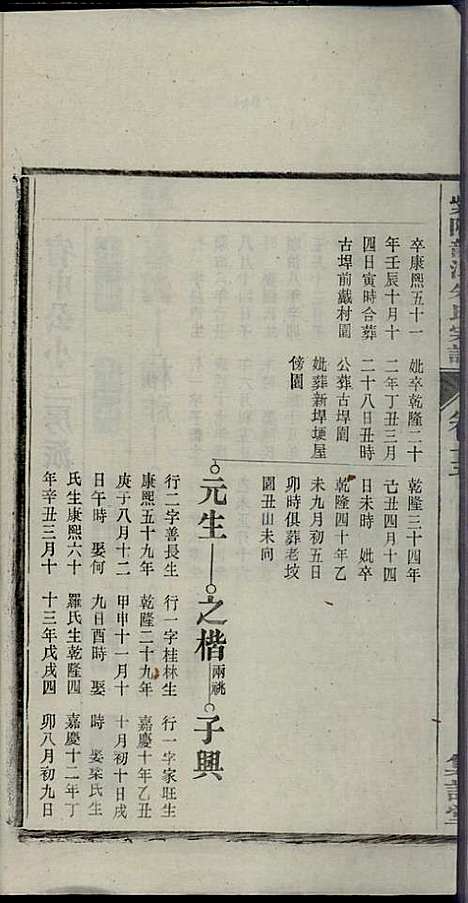 卒康熙五十一
年壬辰十月十
四日寅時合葬
古垾前戴村園
妣卒乾隆二十
二年丁丑三月
二十八日丑時
公葬古垾園
妣葬新垾埂屋
傍園
乾隆三十四年
己丑四月十四
日未時 妣卒
乾隆四十年乙
未九月初五日
卯時俱葬老坟
園丑山未向
元生
之楷兩祧
子興
行二字善長生
康熙五十九年
庚子八月十二
日午時 娶何
氏生康熙六十
年辛丑三月十
行一字桂林生
乾隆二十九年
甲申十一月十
九日酉時 娶
羅氏生乾隆四
十三年戊戌四
行一字家旺生
嘉慶十年乙丑
十月初十日戌
時 娶梁氏生
嘉慶十二年丁
卯八月初九日